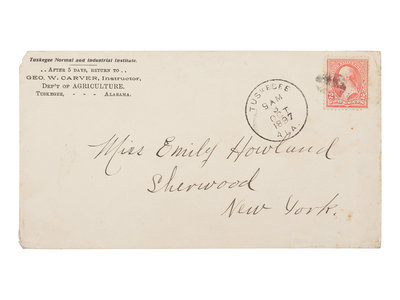 Tuskegee Normal and Industrial Institute.
. . AFTER 5 DAYS, RETURN TO . .
GEO. W. CARVER, Instructor,
DEP'T OF AGRICULTURE.
TUSKEGEE, - - - ALABAMA.
TUSKEGEE
9 AM
OCT
1897
ALA
Miss Emily Howland
Sherwood
New York.